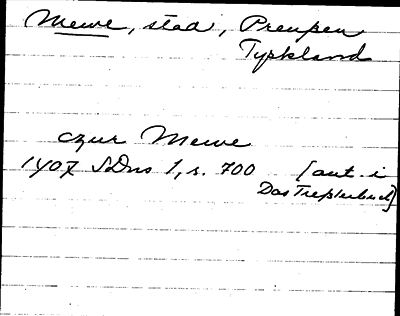 Mewe, stad, Preuβen
Tyskland
czur Mewe
1407 SDns 1, s. 700 [ant. i
Das Treβlerbuch]